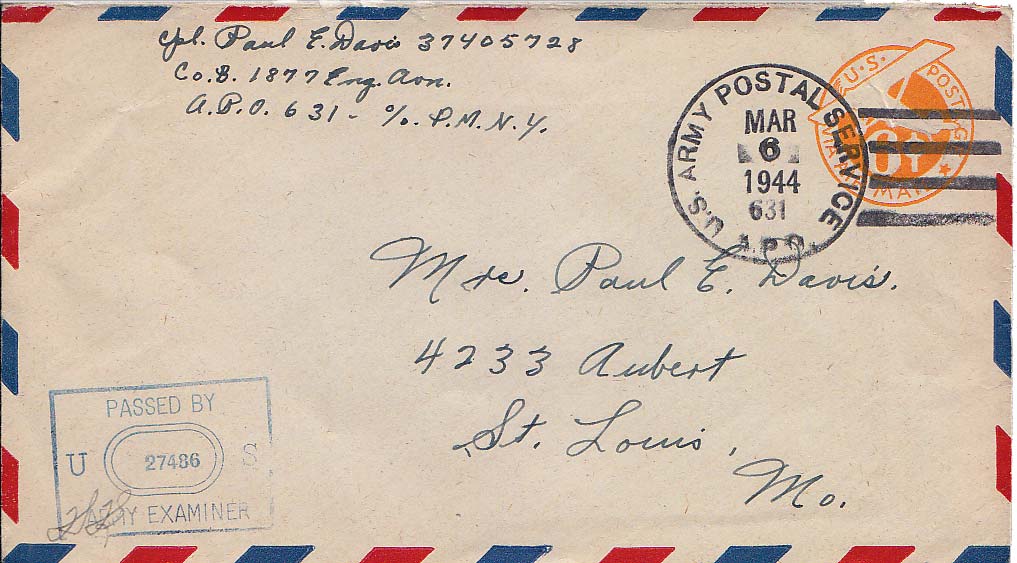 Cpl. Paul E. Davis 37405728
Co. B. 1877 Eng. Avn.
A.P.O. 631 - c/o. P.M.N.Y.
U.S. ARMY POSTAL SERVICE
MAR
6
1944
631
A.P.O.
U.S. POSTAGE
VIA AIR MAIL
6¢
Mrs. Paul E. Davis.
4233 Aubert
St. Louis,
Mo.
PASSED BY
U 27486 S
ARMY EXAMINER